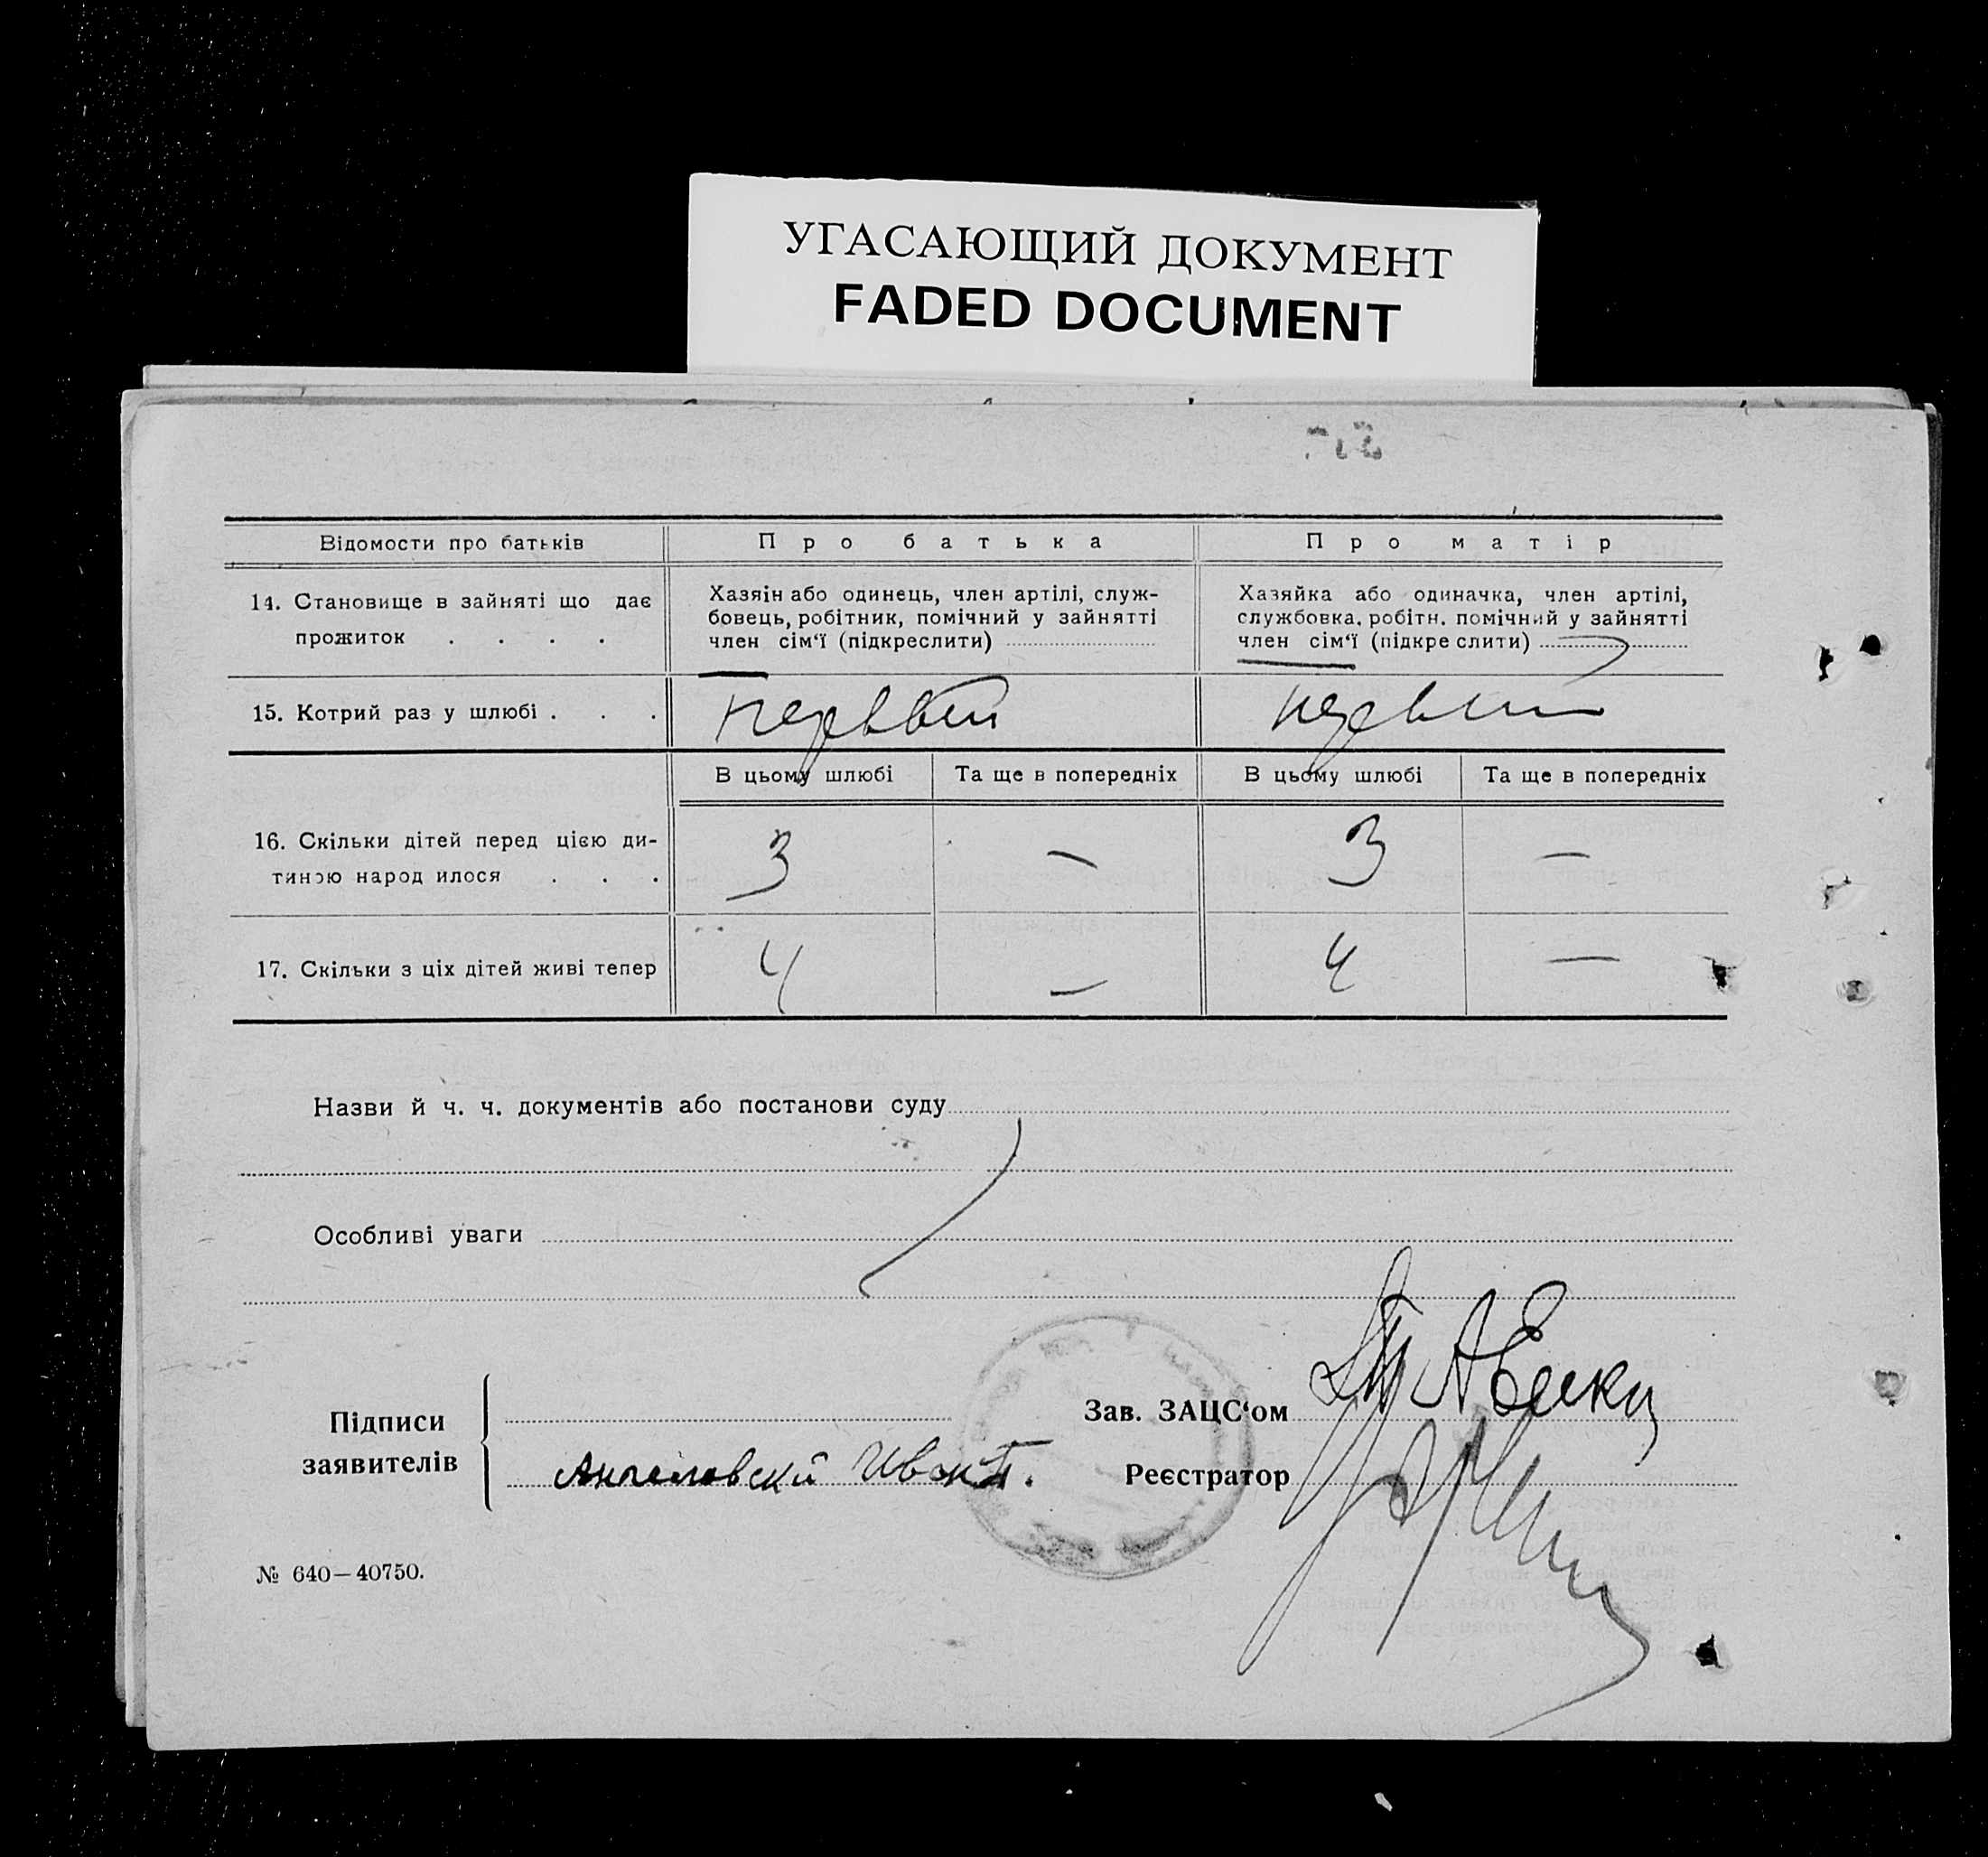 УГАСАЮЩИЙ ДОКУМЕНТ
FADED DOCUMENT
Відомости про батьків
Про батька
Про матір
14. Становище в зайняті що дає
прожиток . . . .
Хазяін або одинець, член артілі, служ-
бовець, робітник, помічний у зайнятті
член сім‘ї (підкреслити)
Хазяйка або одиначка, член артілі,
службовка, робітн. помічний у зайнятті
член сім‘ї (підкре слити)
15. Котрий раз у шлюбі . . .
первый
первый
В цьому шлюбі
Та ще в попередніх
В цьому шлюбі
Та ще в попередніх
16. Скільки дітей перед цією ди-
тиною народ илося . . .
3 — 3 —
17. Скільки з ціх дітей живі тепер
4 — 4 —
Назви й ч. ч. документів або постанови суду
Особливі уваги
Підписи
заявителів
Ангеловский Иван П.
Зав. ЗАЦС‘ом
Реєстратор
№ 640—40750.